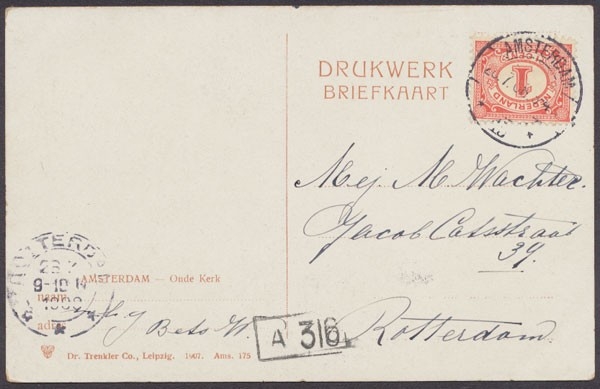 DRUKWERK
BRIEFKAART
AMSTERDAM
NEDERLAND
1
Mej. M. Wachter.
Jacob Catsstraat
39.
Rotterdam.
ROTTERD
9-10
AMSTERDAM — Oude Kerk
naam
adr
Bets W.
A 316
Dr. Trenkler Co., Leipzig. 1907. Ams. 175